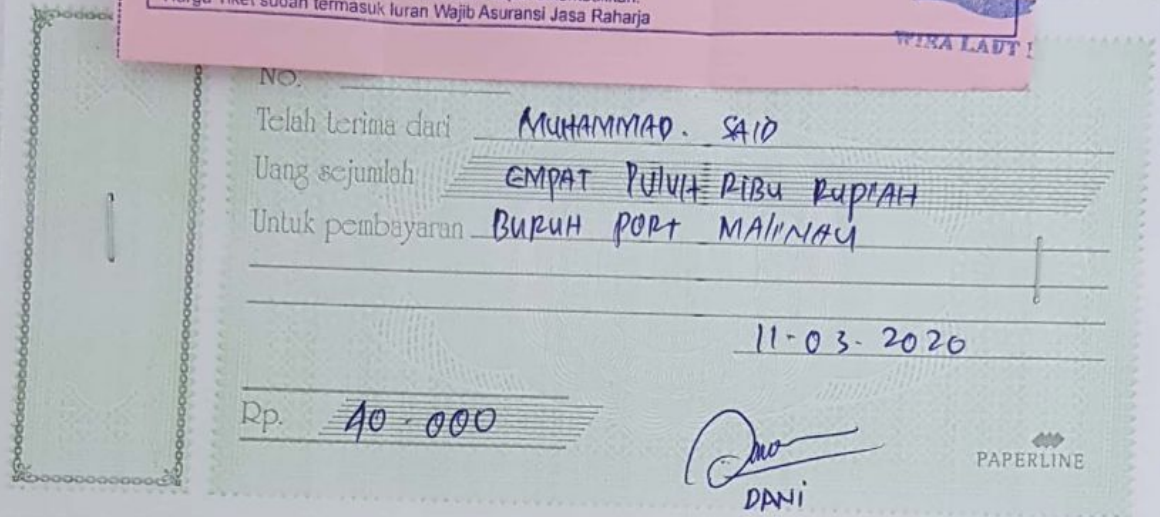 Tiket sudah termasuk Iuran Wajib Asuransi Jasa Raharja
WIRA LAUT
NO.
Telah terima dari MUHAMMAD. SAID
Uang sejumlah EMPAT PULUH RIBU RUPIAH
Untuk pembayaran BURUH PORT MALINAU
11-03-2020
Rp. 40.000
DANI
PAPERLINE